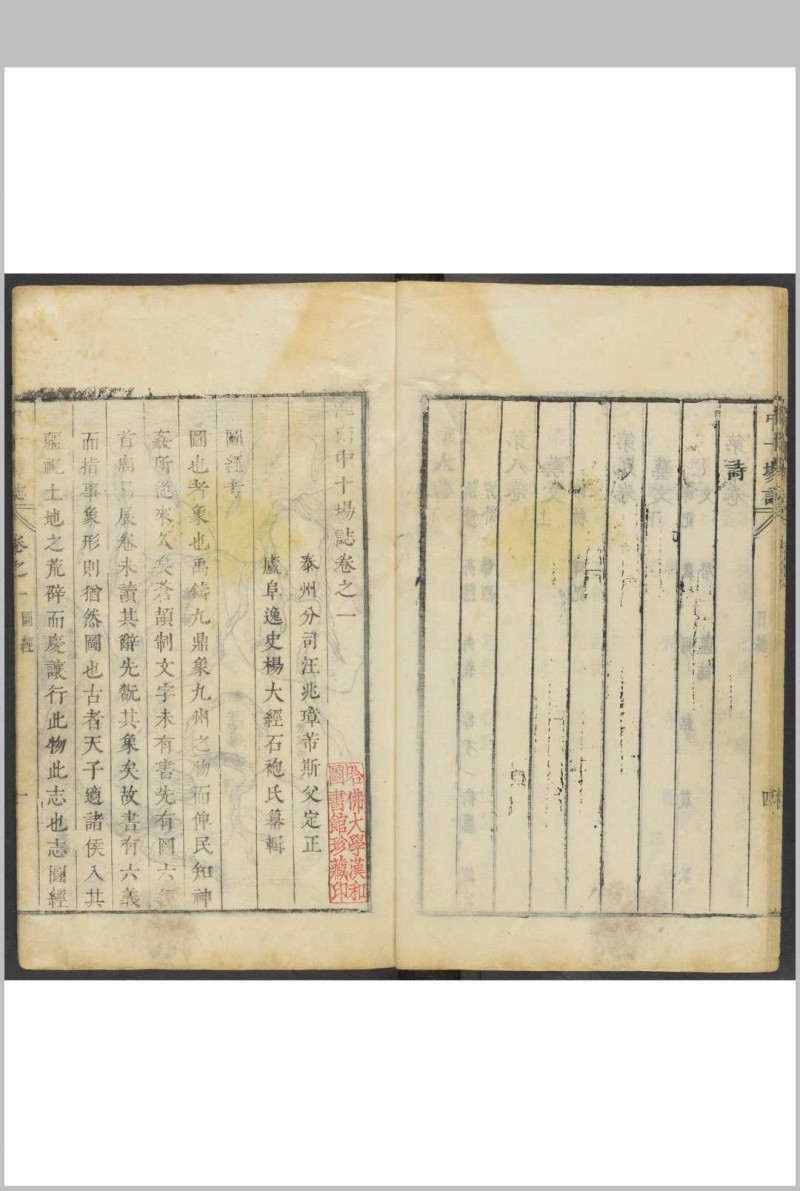 中十場誌
詩
四
淮南中十場誌卷之一
泰州分司汪兆璋芾斯父定正
廬阜逸史楊大經石袍氏纂輯
圖經考
圖也者象也禹鑄九鼎象九州之物而俾民知神
姦所從來久矣蒼頡制文字未有書先有圖六經
首周易展卷未讀其辭先翫其象矣故書有六義
而指事象形則猶然圖也古者天子適諸侯入其
疆視土地之荒辟而慶讓行此物此志也志圖經
誌
卷之一
圖經
一
哈佛大學漢和
圖書館珍藏印